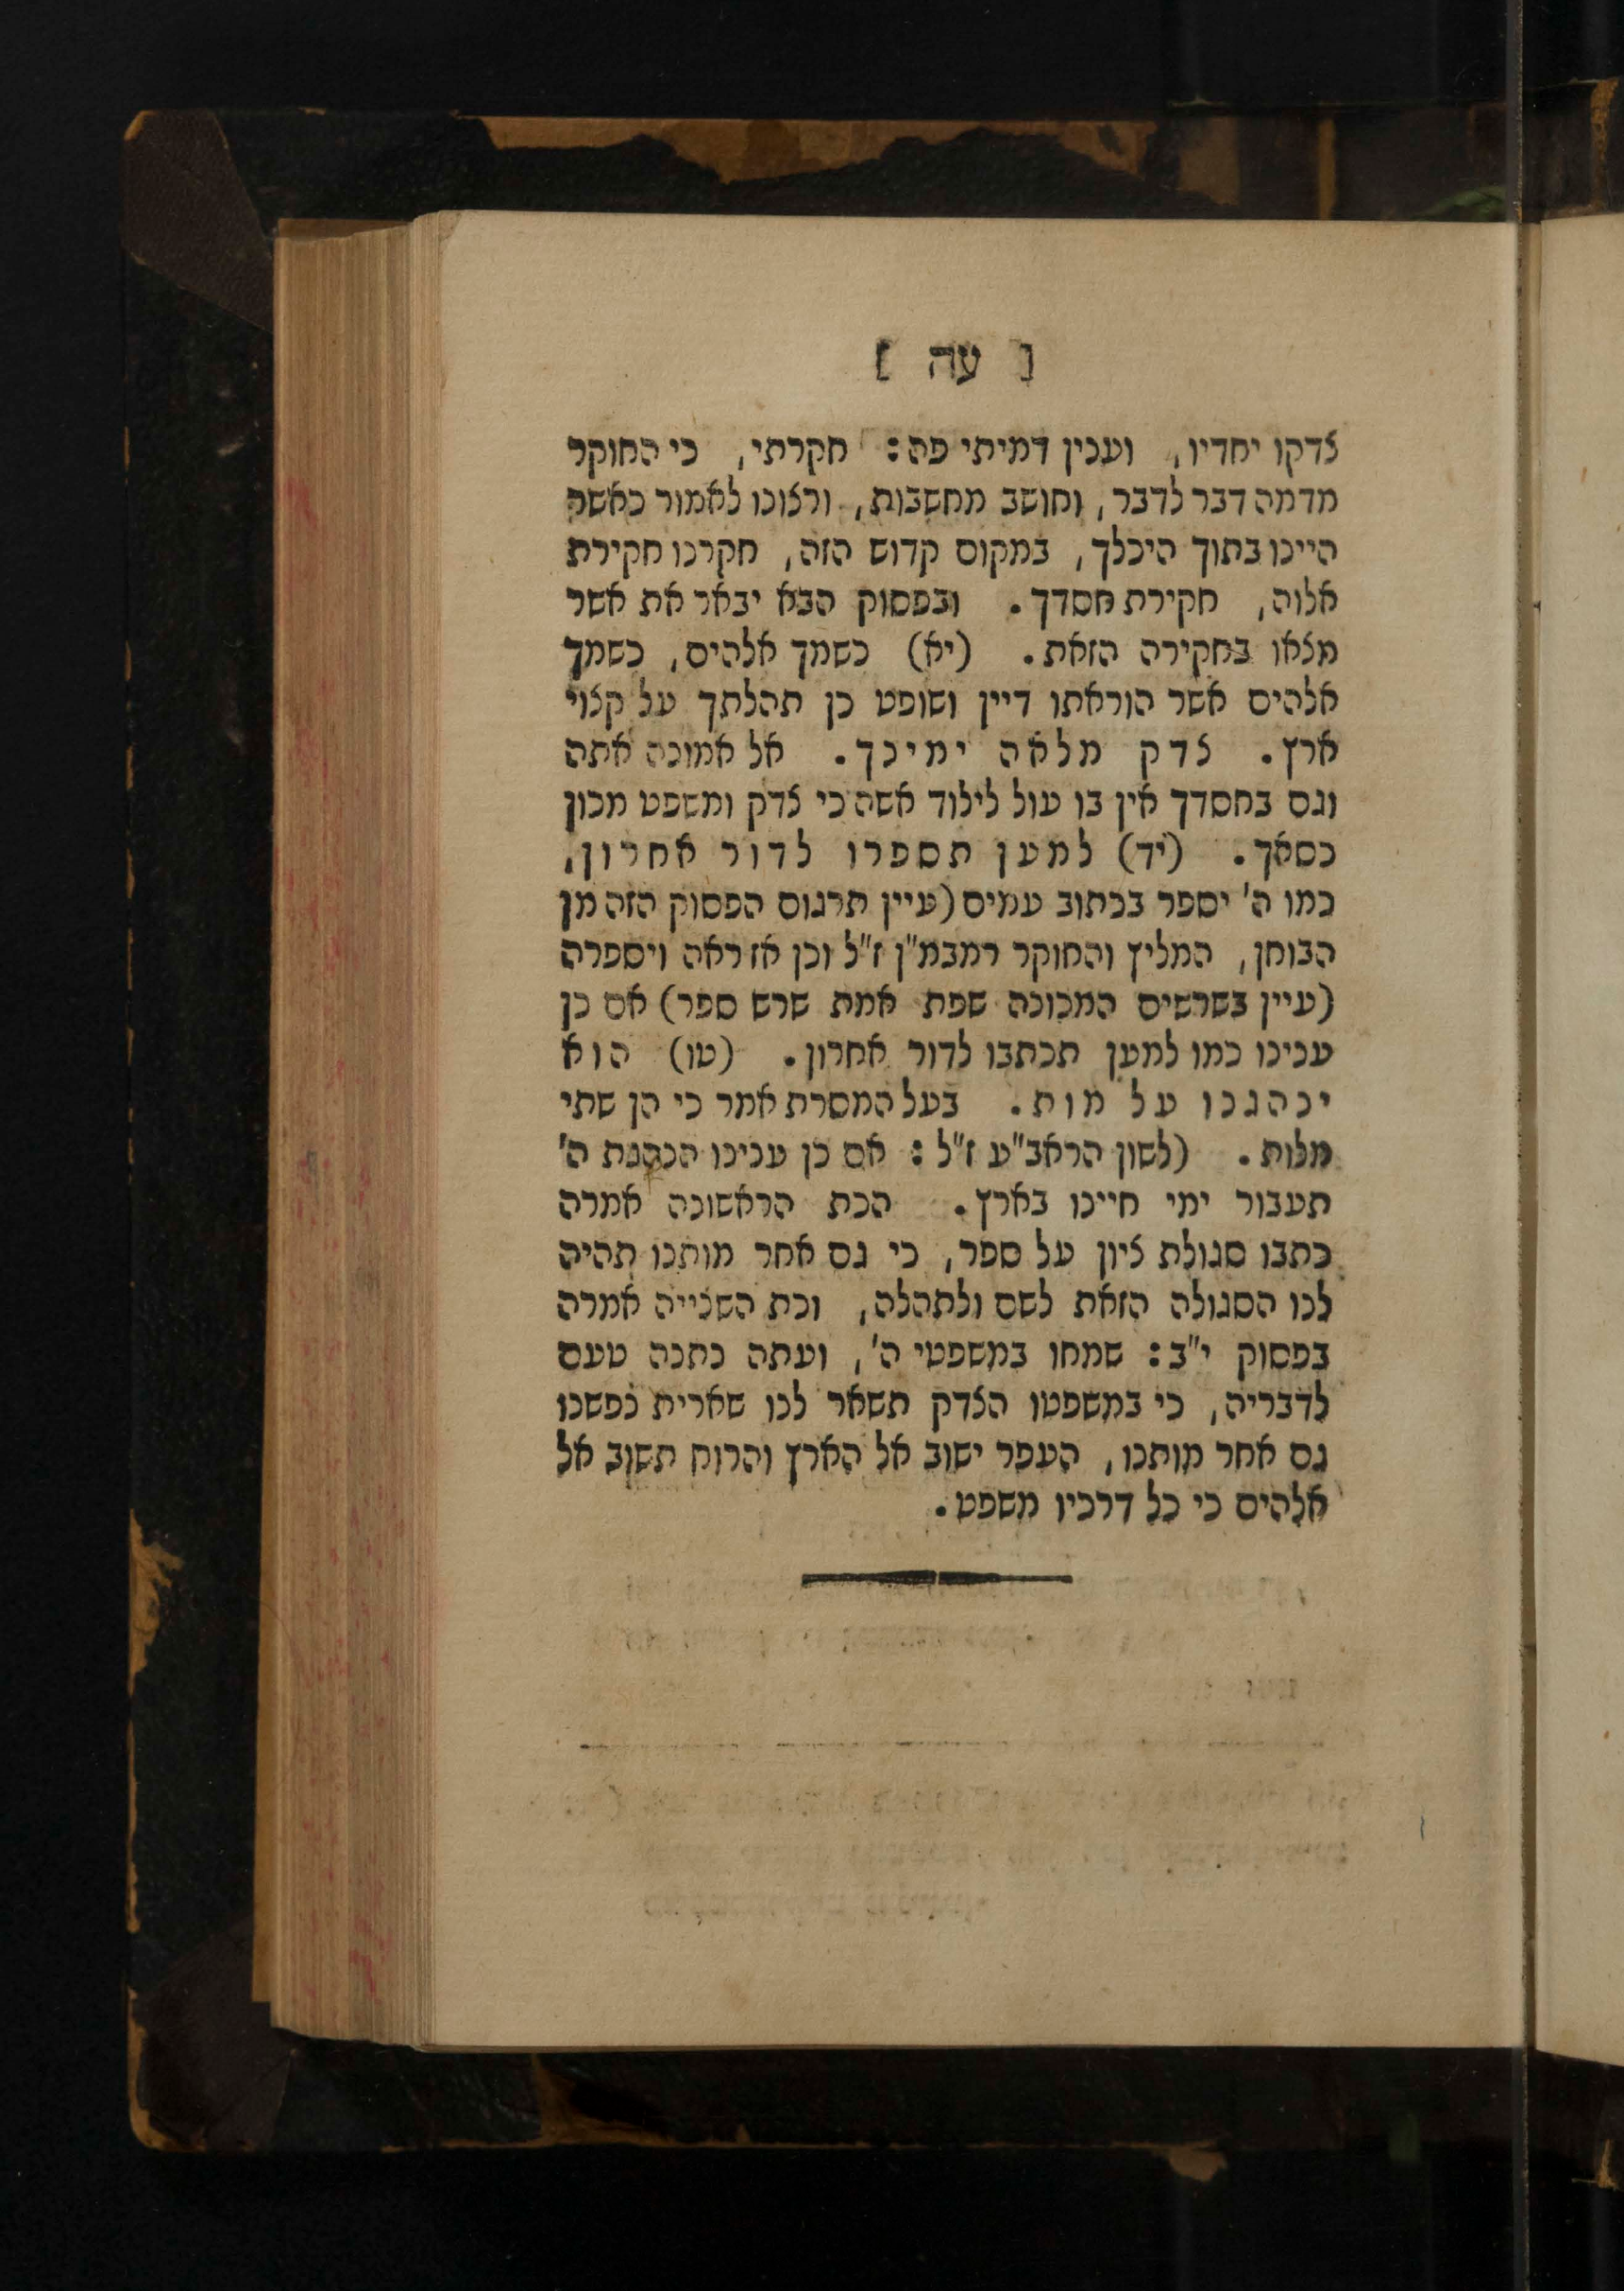 [ עה ]
צדקו יחדיו, וענין דמיתי פה: חקרתי, כי החוקר
מדמה דבר לדבר, וחושב מחשבות, ורצונו לאמור כאשר
היינו בתוך היכלך, במקום קדוש הזה, חקרנו חקירת
אלוה, חקירת חסדך. ובפסוק הבא יבאר את אשר
מצאו בחקירה הזאת. (יא) כשמך אלהים, כשמך
אלהים אשר הוראתו דיין ושופט כן תהלתך על קצוי
ארץ. צדק מלאה ימינך. אל אמונה אתה
וגם בחסדך אין בו עול לילוד אשה כי צדק ומשפט מכון
כסאך. (יד) למען תספרו לדור אחרון,
כמו ה' יספר בכתוב עמים (עיין תרגום הפסוק הזה מן
הבוחן, המליץ והחוקר רמבמ"ן ז"ל וכן אז ראה ויספרה
(עיין בשרשים המכונה שפת אמת שרש ספר) אם כן
ענינו כמו למען תכתבו לדור אחרון. (טו) הוא
ינהגנו על מות. בעל המסרת אמר כי הן שתי
מלות. (לשון הראב"ע ז"ל: אם כן ענינו הנהגת ה'
תעבור ימי חיינו בארץ. הכת הראשונה אמרה
כתבו סגולת ציון על ספר, כי גם אחר מותנו תהיה
לנו הסגולה הזאת לשם ולתהלה, וכת השנייה אמרה
בפסוק י"ב: שמחו במשפטי ה', ועתה נתנה טעם
לדבריה, כי במשפטו הצדק תשאר לנו שארית נפשנו
גם אחר מותנו, העפר ישוב אל הארץ והרוח תשוב אל
אלהים כי כל דרכיו משפט.